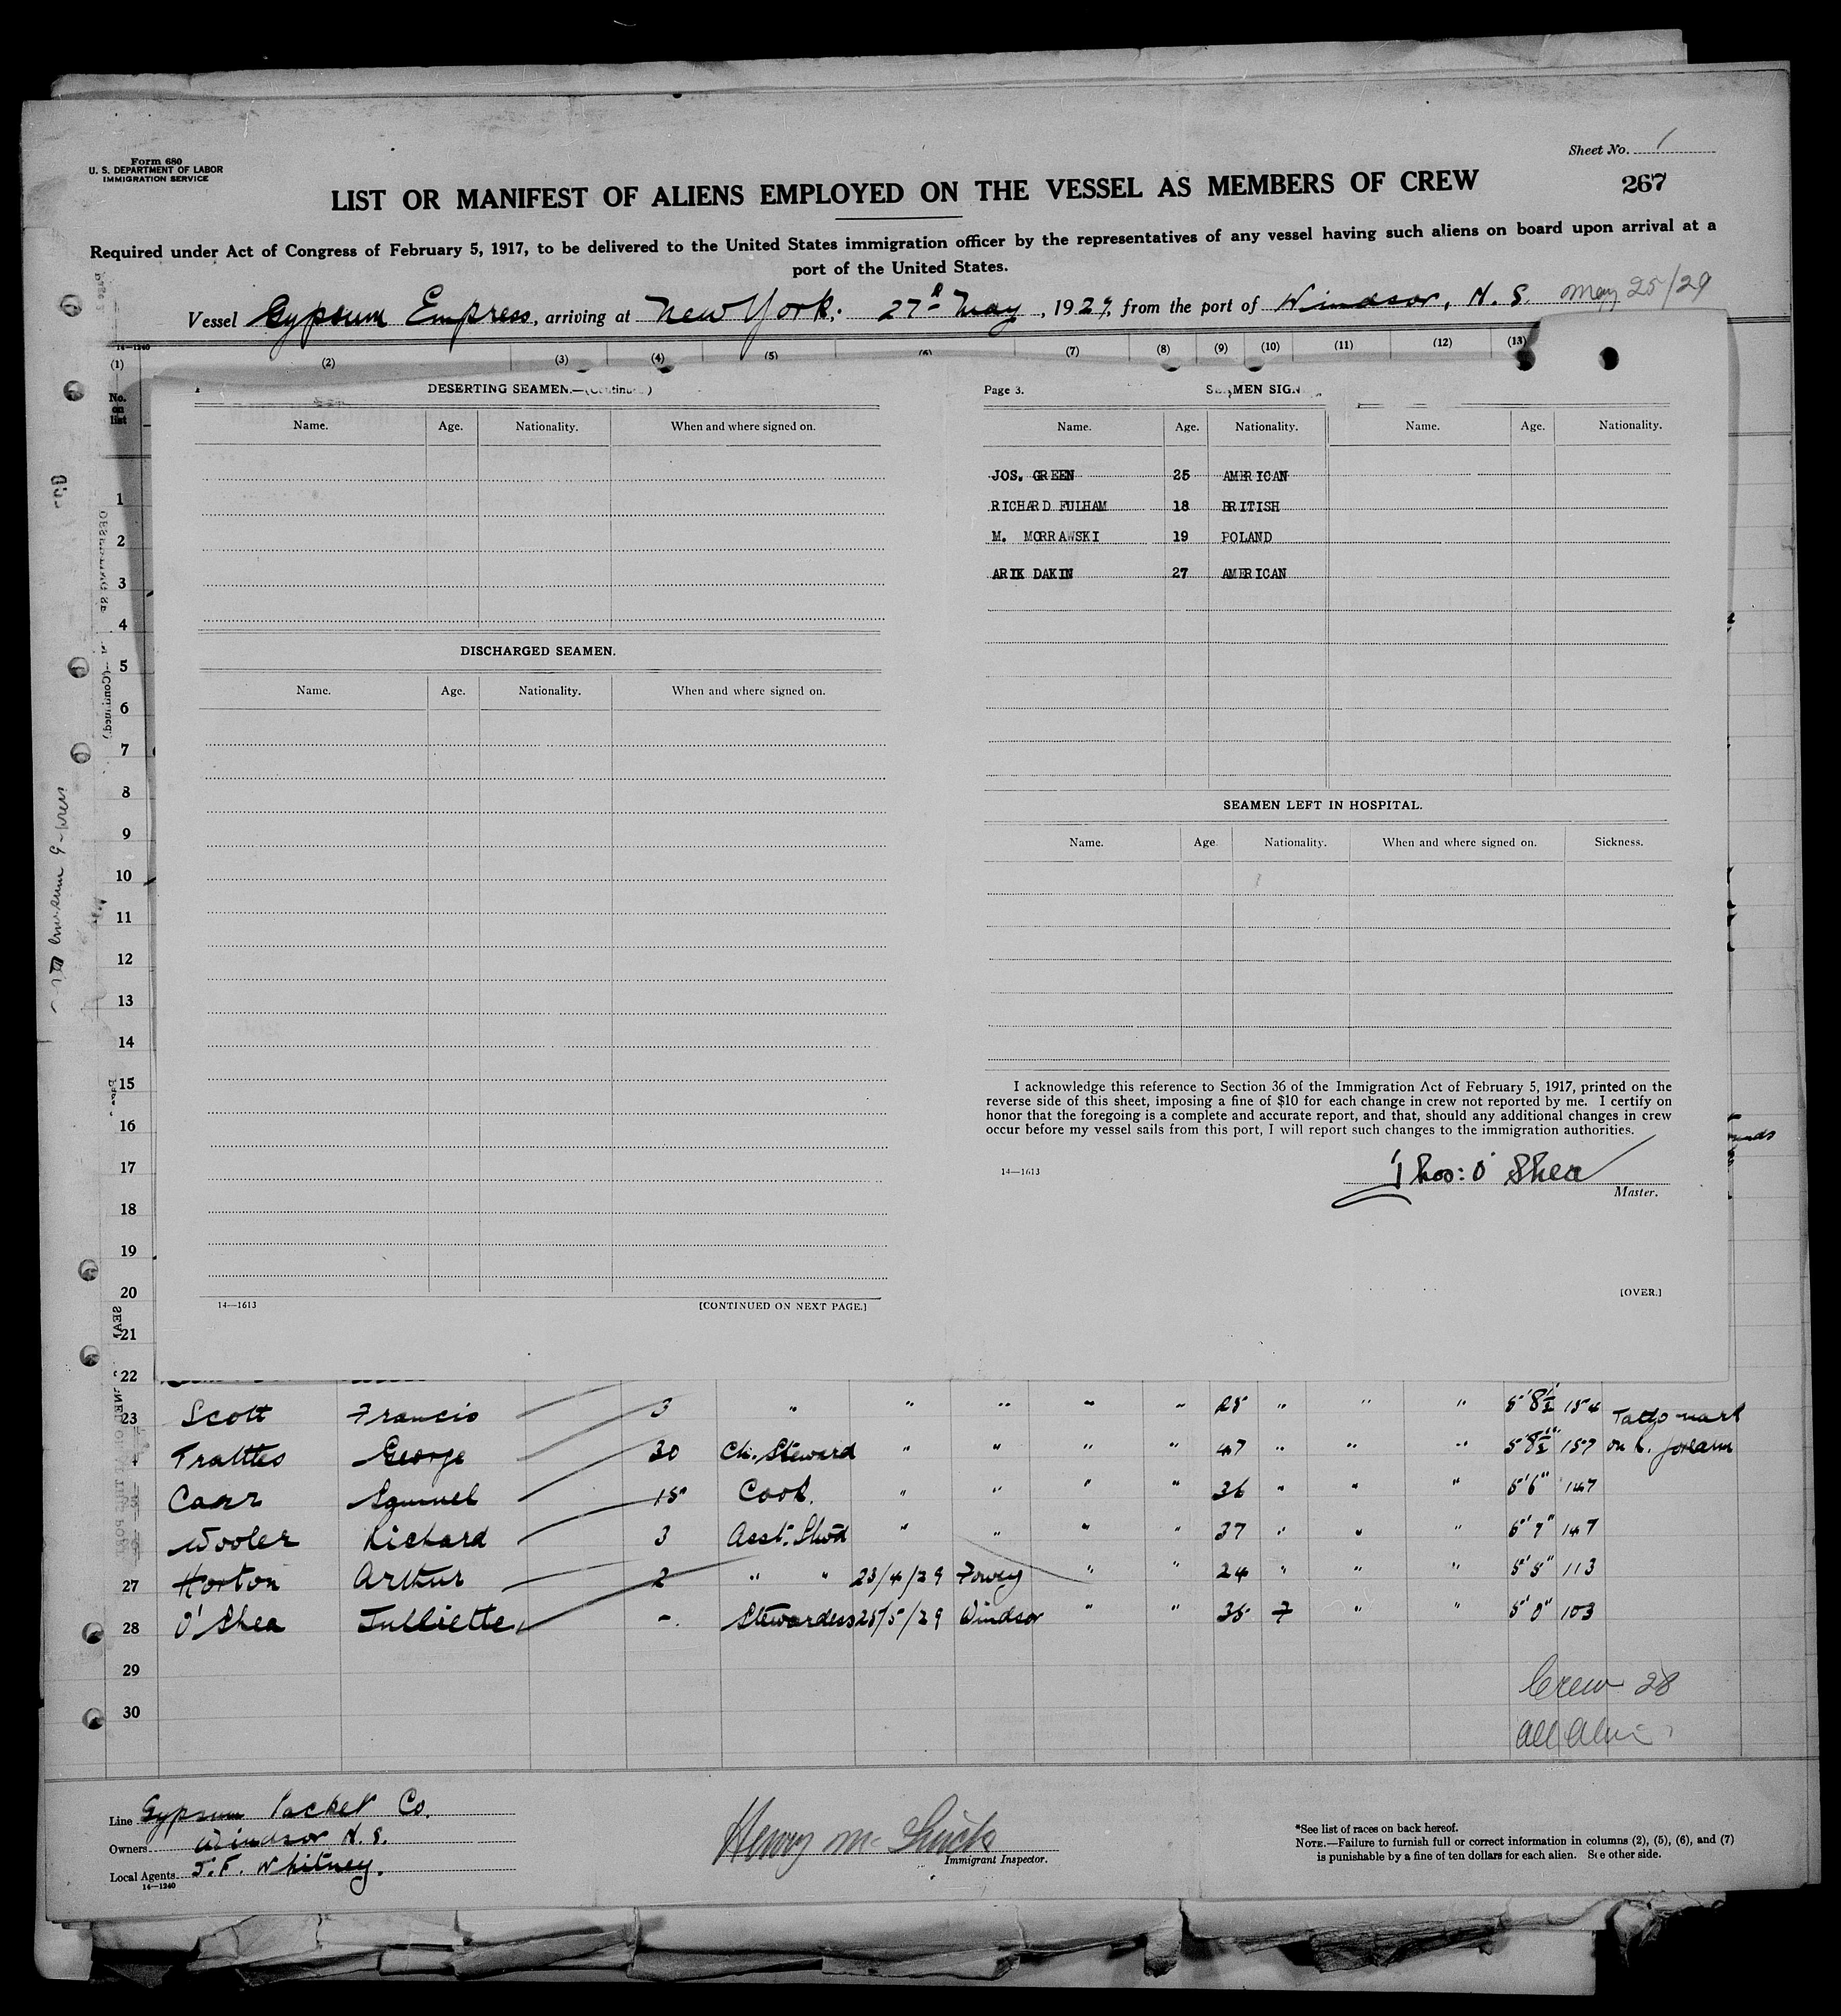 Form 680
U. S. DEPARTMENT OF LABOR
IMMIGRATION SERVICE
Sheet No. 1
267
LIST OR MANIFEST OF ALIENS EMPLOYED ON THE VESSEL AS MEMBERS OF CREW
Required under Act of Congress of February 5, 1917, to be delivered to the United States immigration officer by the representatives of any vessel having such aliens on board upon arrival at a
port of the United States.
Vessel Gypsum Empress, arriving at New York, 27th May, 1929, from the port of Windsor, N. S. May 25/29
14—1240
(1) (2) (3) (4) (5) (6) (7) (8) (9) (10) (11) (12) (13)
No. on list
DESERTING SEAMEN.—(Continu )
Name. Age. Nationality. When and where signed on.
DISCHARGED SEAMEN.
Name. Age. Nationality. When and where signed on.
14—1613 [CONTINUED ON NEXT PAGE.]
Page 3. SEAMEN SIGN
Name. Age. Nationality. Name. Age. Nationality.
JOS. GREEN 25 AMERICAN
RICHARD FULHAM 18 BRITISH
M. MORRAWSKI 19 POLAND
ARIK DAKIN 27 AMERICAN
SEAMEN LEFT IN HOSPITAL.
Name. Age. Nationality. When and where signed on. Sickness.
I acknowledge this reference to Section 36 of the Immigration Act of February 5, 1917, printed on the
reverse side of this sheet, imposing a fine of $10 for each change in crew not reported by me. I certify on
honor that the foregoing is a complete and accurate report, and that, should any additional changes in crew
occur before my vessel sails from this port, I will report such changes to the immigration authorities.
14—1613
Thos: O'Shea
Master.
[OVER.]
1
2
3
4
5
6
7
8
9
10
11
12
13
14
15
16
17
18
19
20
21
22
23 Scott Francis 3 " " " " " 25 " " " 5'8½ 154 Tatto mark
Trattles George 30 Ch. Steward " " " " 47 " " " 5'8½" 157 on L. forearm
Carr Samuel 15 Cook. " " " " 36 " " " 5'6" 147
Wooler Richard 3 Asst. Stwd " " " " 37 " " " 147
27 Horton Arthur 2 " " 23/4/29 Fowey " " 24 " " " 5'5" 113
28 O'Shea Julliette - Stewardess 25/5/29 Windsor " " 35 F " " 5'0" 103
29
30
Crew 28
All
Line Gypsum Packet Co.
Owners Windsor N. S.
Local Agents J. F. Whitney.
14—1240
Henry
Immigrant Inspector.
*See list of races on back hereof.
NOTE.—Failure to furnish full or correct information in columns (2), (5), (6), and (7)
is punishable by a fine of ten dollars for each alien. See other side.